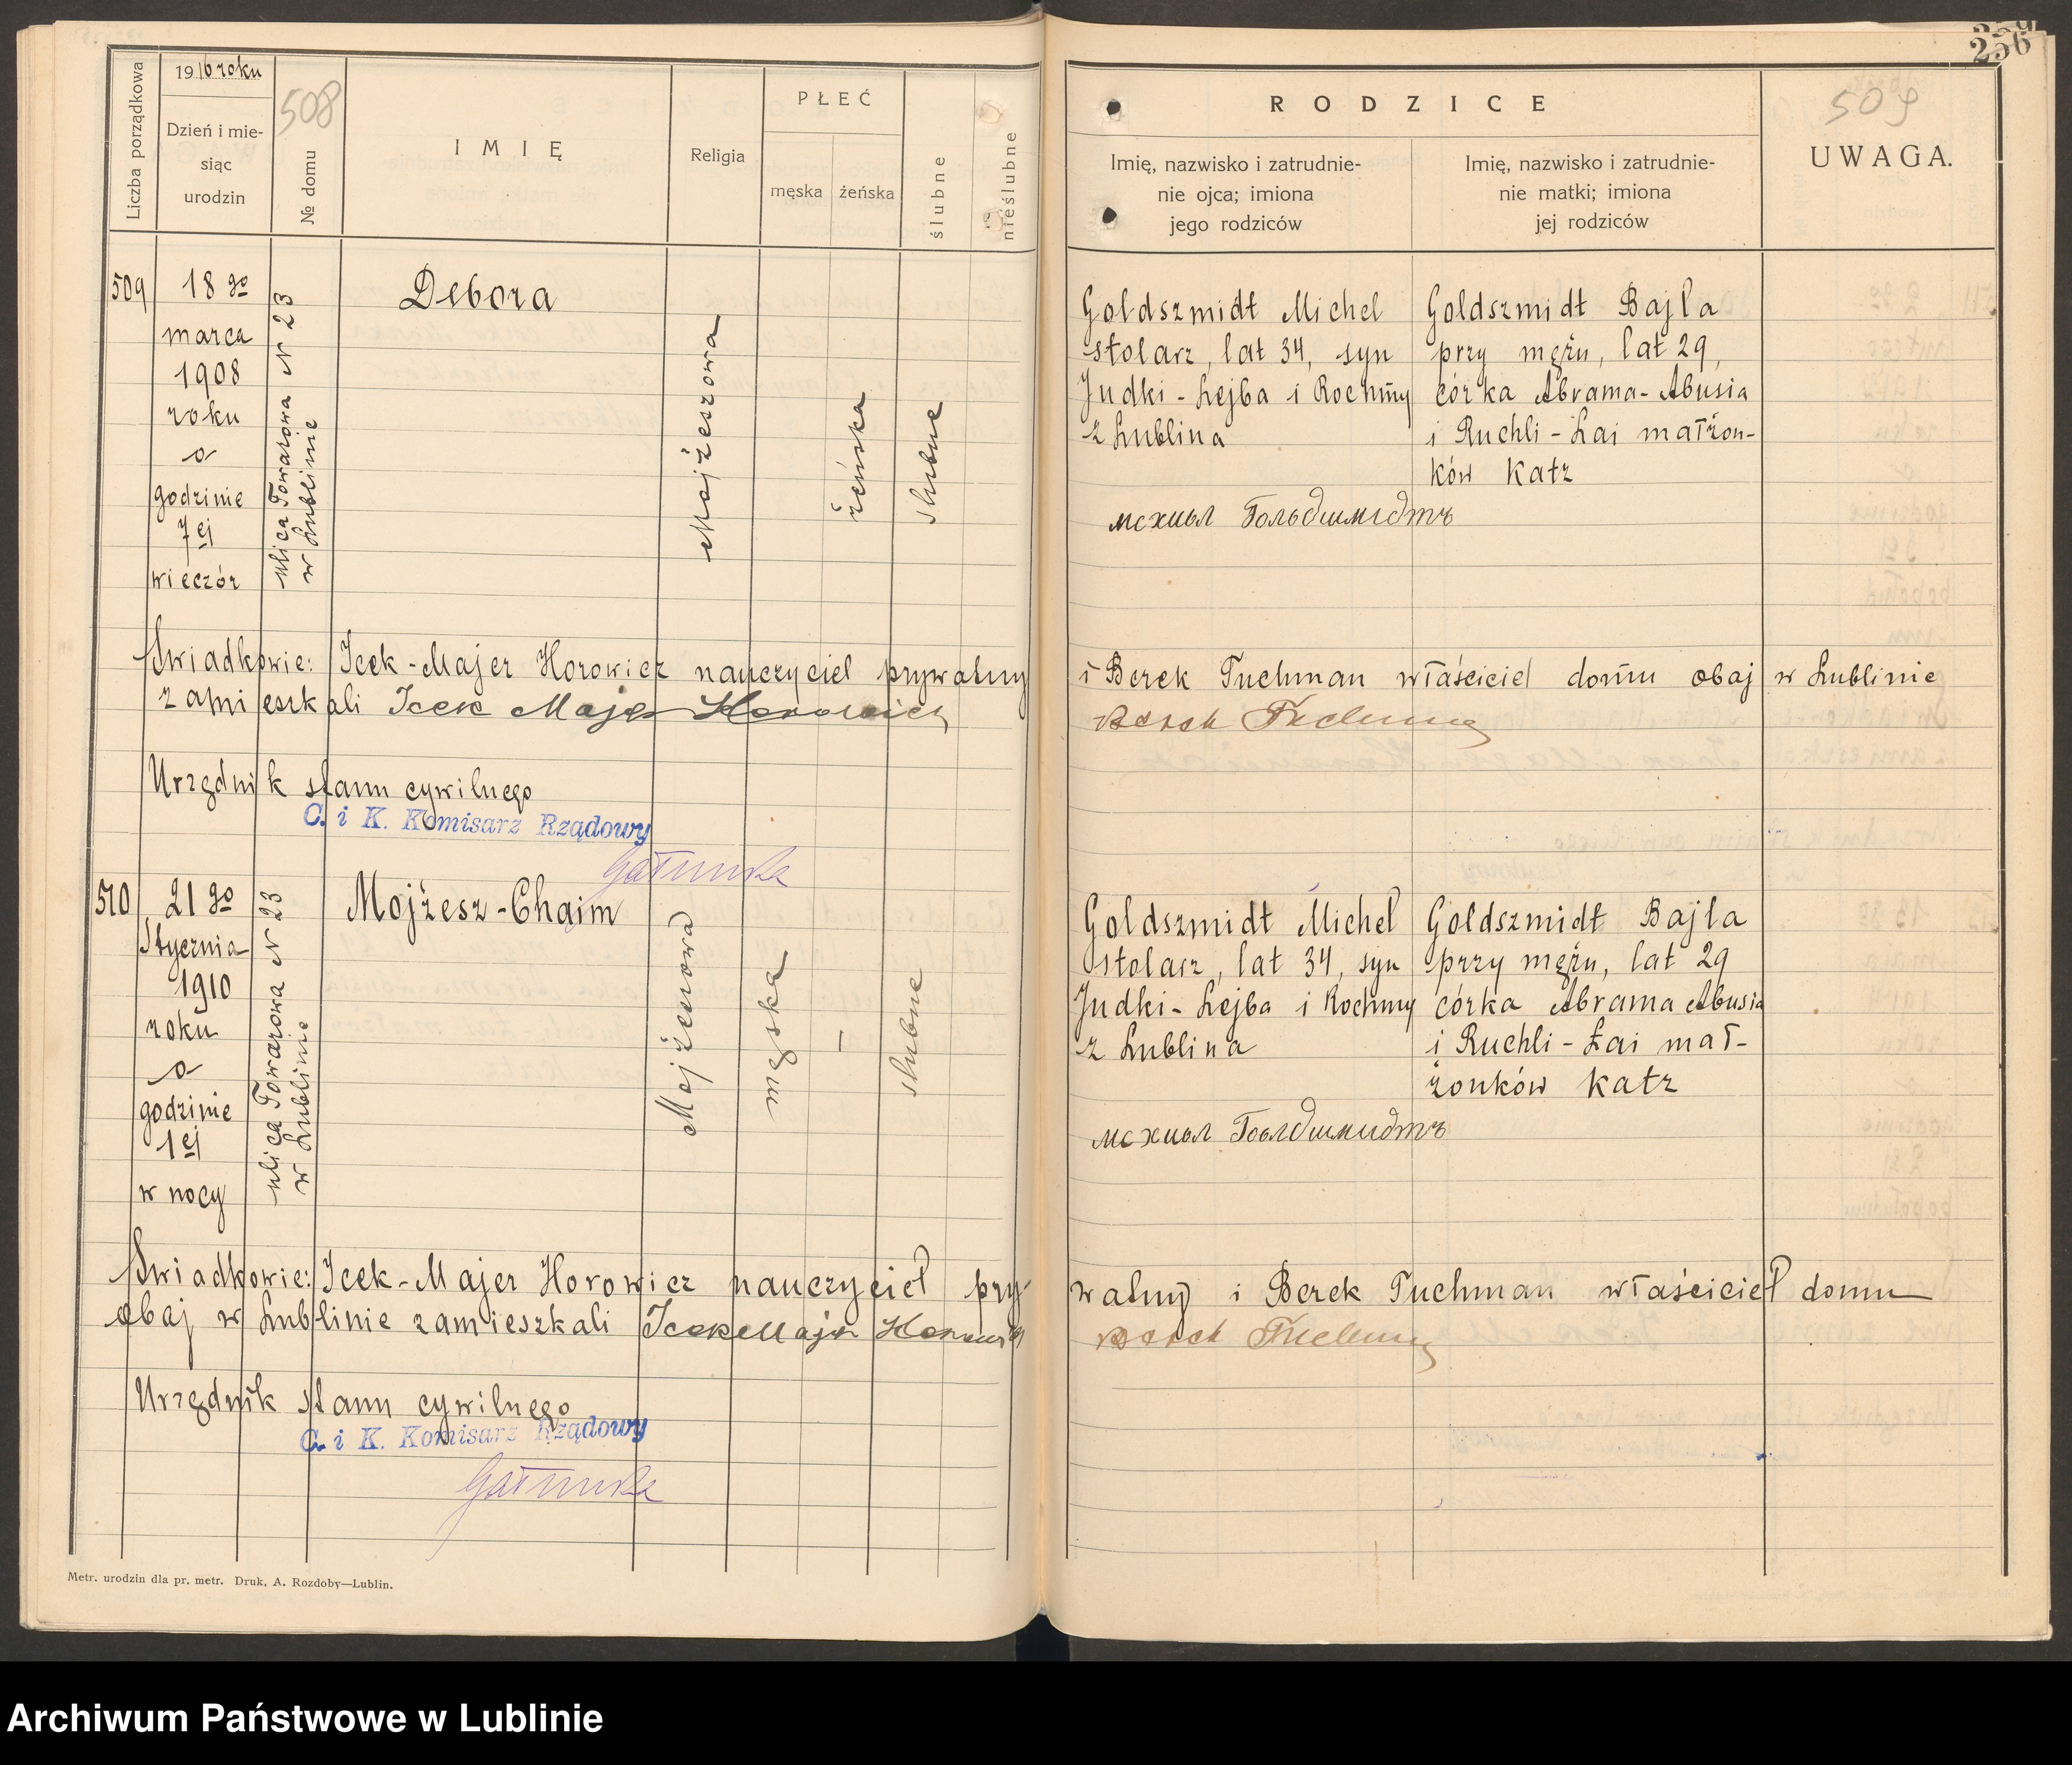 256
1916 roku
508
509
Liczba porządkowa
Dzień i mie-
siąc
urodzin
№ domu
IMIĘ
Religia
PŁEĆ
męska
żeńska
ślubne
nieślubne
RODZICE
Imię, nazwisko i zatrudnie-
nie ojca; imiona
jego rodziców
Imię, nazwisko i zatrudnie-
nie matki; imiona
jej rodziców
UWAGA.
509
18 go
marca
1908
roku
o
godzinie
7 ej
wieczór
ulica Towarowa N 23
w Lublinie
Debora
Mojżeszowa
żeńska
ślubne
Goldszmidt Michel
stolarz, lat 34, syn
Judki-Lejba i Rochmy
z Lublina
Goldszmidt Bajla
przy mężu, lat 29,
córka Abrama-Abusia
i Ruchli-Łai małżon-
ków Katz
мехиел Гольдшмидтъ
Świadkowie: Icek-Majer Horowicz nauczyciel prywatny i Berek Tuchman właściciel domu obaj w Lublinie
zamieszkali Icek Majer Horowicz Berek Tuchman
Urzędnik stanu cywilnego
C. i K. Komisarz Rządowy
510
21 go
Stycznia
1910
roku
o
godzinie
1 ej
w nocy
ulica Towarowa N 23
w Lublinie
Mojżesz-Chaim
Mojżeszowa
męska
–
ślubne
Goldszmidt Michel
stolarz, lat 34, syn
Judki-Lejba i Rochmy
z Lublina
Goldszmidt Bajla
przy mężu, lat 29
córka Abrama Abusia
i Ruchli-Łai mał-
żonków Katz
мехиел Гоелдшмидтъ
Świadkowie: Icek-Majer Horowicz nauczyciel pry-watny i Berek Tuchman właściciel domu
obaj w Lublinie zamieszkali Icek Majer Horowicz Berek Tuchman
Urzędnik stanu cywilnego
C. i K. Komisarz Rządowy
Metr. urodzin dla pr. metr. Druk. A. Rozdoby—Lublin.
Archiwum Państwowe w Lublinie